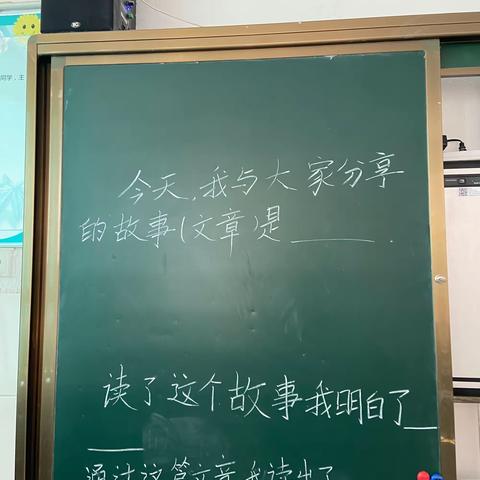 今天,我与大家分享
的故事(文章)是______.
读了这个故事我明白了__
____
通过这篇文章我读出了
同学,主